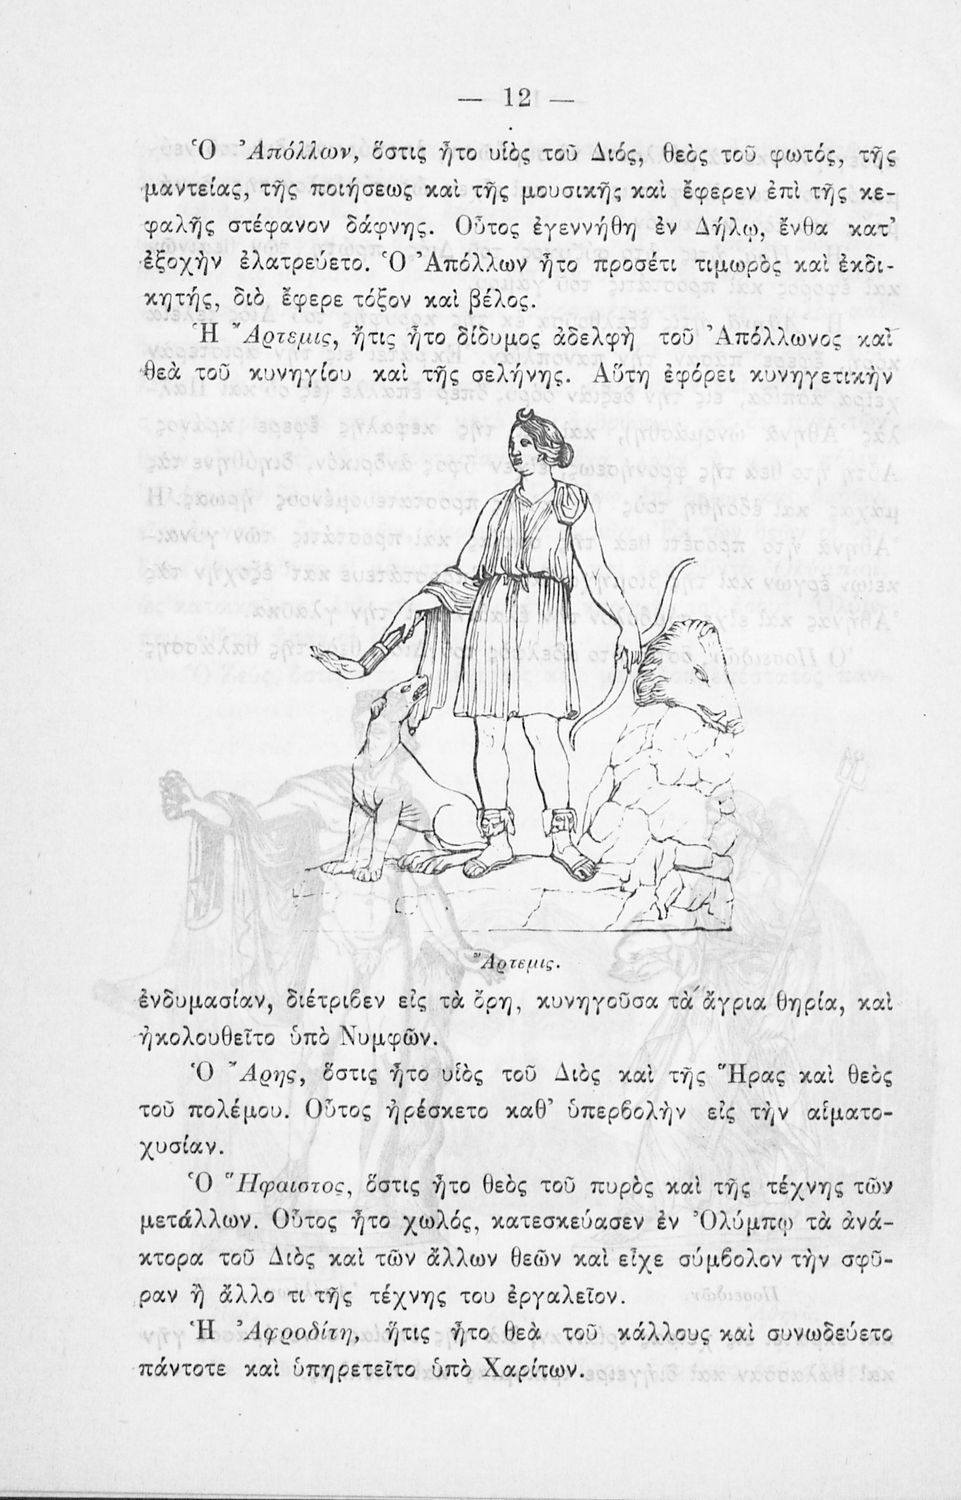 — 12 —
Ὁ Ἀπόλλων, ὅστις ἦτο υἱὸς τοῦ Διός, θεὸς τοῦ φωτός, τῆς
μαντείας, τῆς ποιήσεως καὶ τῆς μουσικῆς καὶ ἔφερεν ἐπὶ τῆς κε-
φαλῆς στέφανον δάφνης. Οὗτος ἐγεννήθη ἐν Δήλῳ, ἔνθα κατ’
ἐξοχὴν ἐλατρεύετο. Ὁ Ἀπόλλων ἦτο προσέτι τιμωρὸς καὶ ἐκδι-
κητής, διὸ ἔφερε τόξον καὶ βέλος.
Ἡ Ἄρτεμις, ἥτις ἦτο δίδυμος ἀδελφὴ τοῦ Ἀπόλλωνος καὶ
θεὰ τοῦ κυνηγίου καὶ τῆς σελήνης. Αὕτη ἐφόρει κυνηγετικὴν
Ἄρτεμις.
ἐνδυμασίαν, διέτριβεν εἰς τὰ ὄρη, κυνηγοῦσα τὰ ἄγρια θηρία, καὶ
ἠκολουθεῖτο ὑπὸ Νυμφῶν.
Ὁ Ἄρης, ὅστις ἦτο υἱὸς τοῦ Διὸς καὶ τῆς Ἥρας καὶ θεὸς
τοῦ πολέμου. Οὗτος ἠρέσκετο καθ’ ὑπερβολὴν εἰς τὴν αἱματο-
χυσίαν.
Ὁ Ἥφαιστος, ὅστις ἦτο θεὸς τοῦ πυρὸς καὶ τῆς τέχνης τῶν
μετάλλων. Οὗτος ἦτο χωλός, κατεσκεύασεν ἐν Ὀλύμπῳ τὰ ἀνά-
κτορα τοῦ Διὸς καὶ τῶν ἄλλων θεῶν καὶ εἶχε σύμβολον τὴν σφῦ-
ραν ἢ ἄλλο τι τῆς τέχνης του ἐργαλεῖον.
Ἡ Ἀφροδίτη, ἥτις ἦτο θεὰ τοῦ κάλλους καὶ συνωδεύετο
πάντοτε καὶ ὑπηρετεῖτο ὑπὸ Χαρίτων.